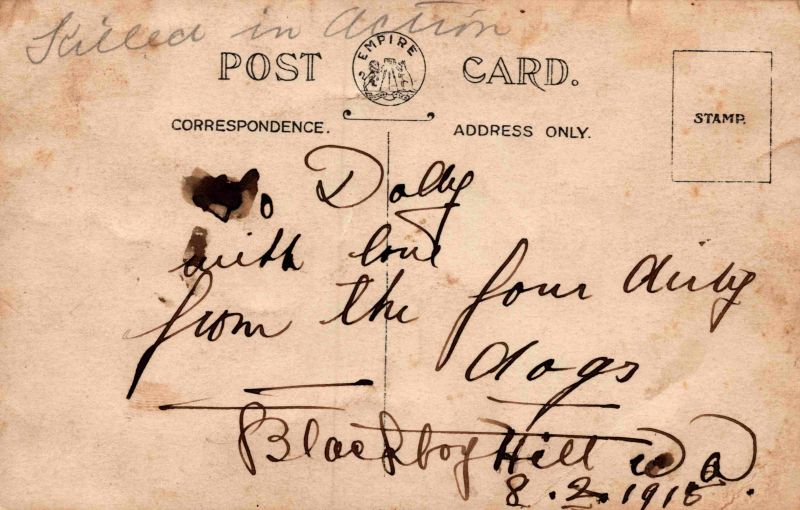 Killed in Action
POST EMPIRE CARD.
CORRESPONDENCE. ADDRESS ONLY.
STAMP.
To Dolly
with love
from the four dirty
dogs
Blackboy Hill W A
8.2.1915